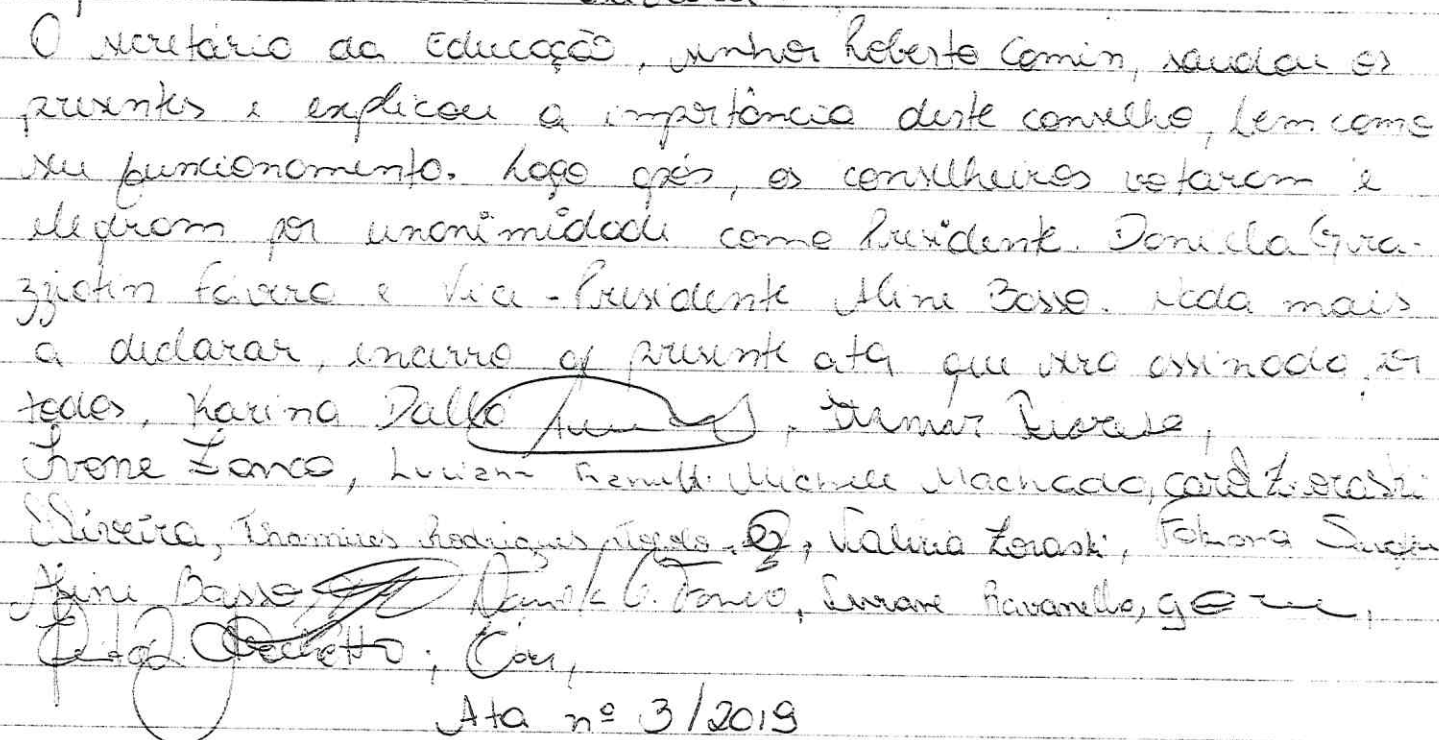 O secretário da Educação, senhor Roberto Comin, saudou os
presentes e explicou a importância deste conselho, bem como
seu funcionamento. Logo após, os conselheiros votaram e
elegeram por unanimidade como Presidente. Daniela Gra-
zziotin Fávero e Vice-Presidente Aline Basso. Nada mais
a declarar, encerro a presente ata que será assinada por
todos, Karina Dallo
Ivone Zanco, Luciana Michele Machado, Carol Zoraski
Oliveira, Thamires Rodrigues, Valéria Zoraski,
Aline Basso Daniela G. Favero, Ravanello,
Ata nº 3/2019